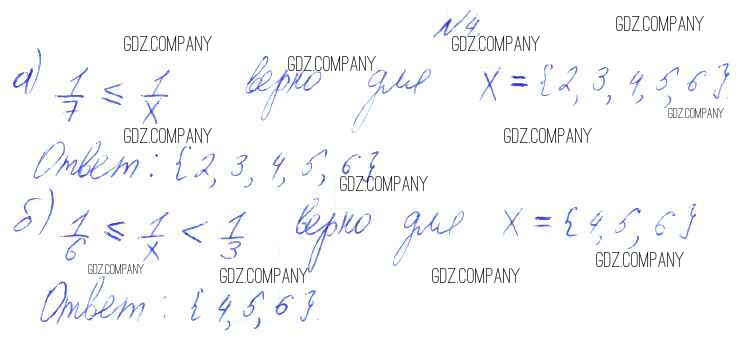 №4.
а) 1/7 ≤ 1/x верно для x = {2, 3, 4, 5, 6}.
Ответ: {2, 3, 4, 5, 6}
б) 1/6 ≤ 1/x < 1/3 верно для x = {4, 5, 6}
Ответ: {4, 5, 6}.
GDZ.COMPANY
GDZ.COMPANY
GDZ.COMPANY
GDZ.COMPANY
GDZ.COMPANY
GDZ.COMPANY
GDZ.COMPANY
GDZ.COMPANY
GDZ.COMPANY
GDZ.COMPANY
GDZ.COMPANY
GDZ.COMPANY